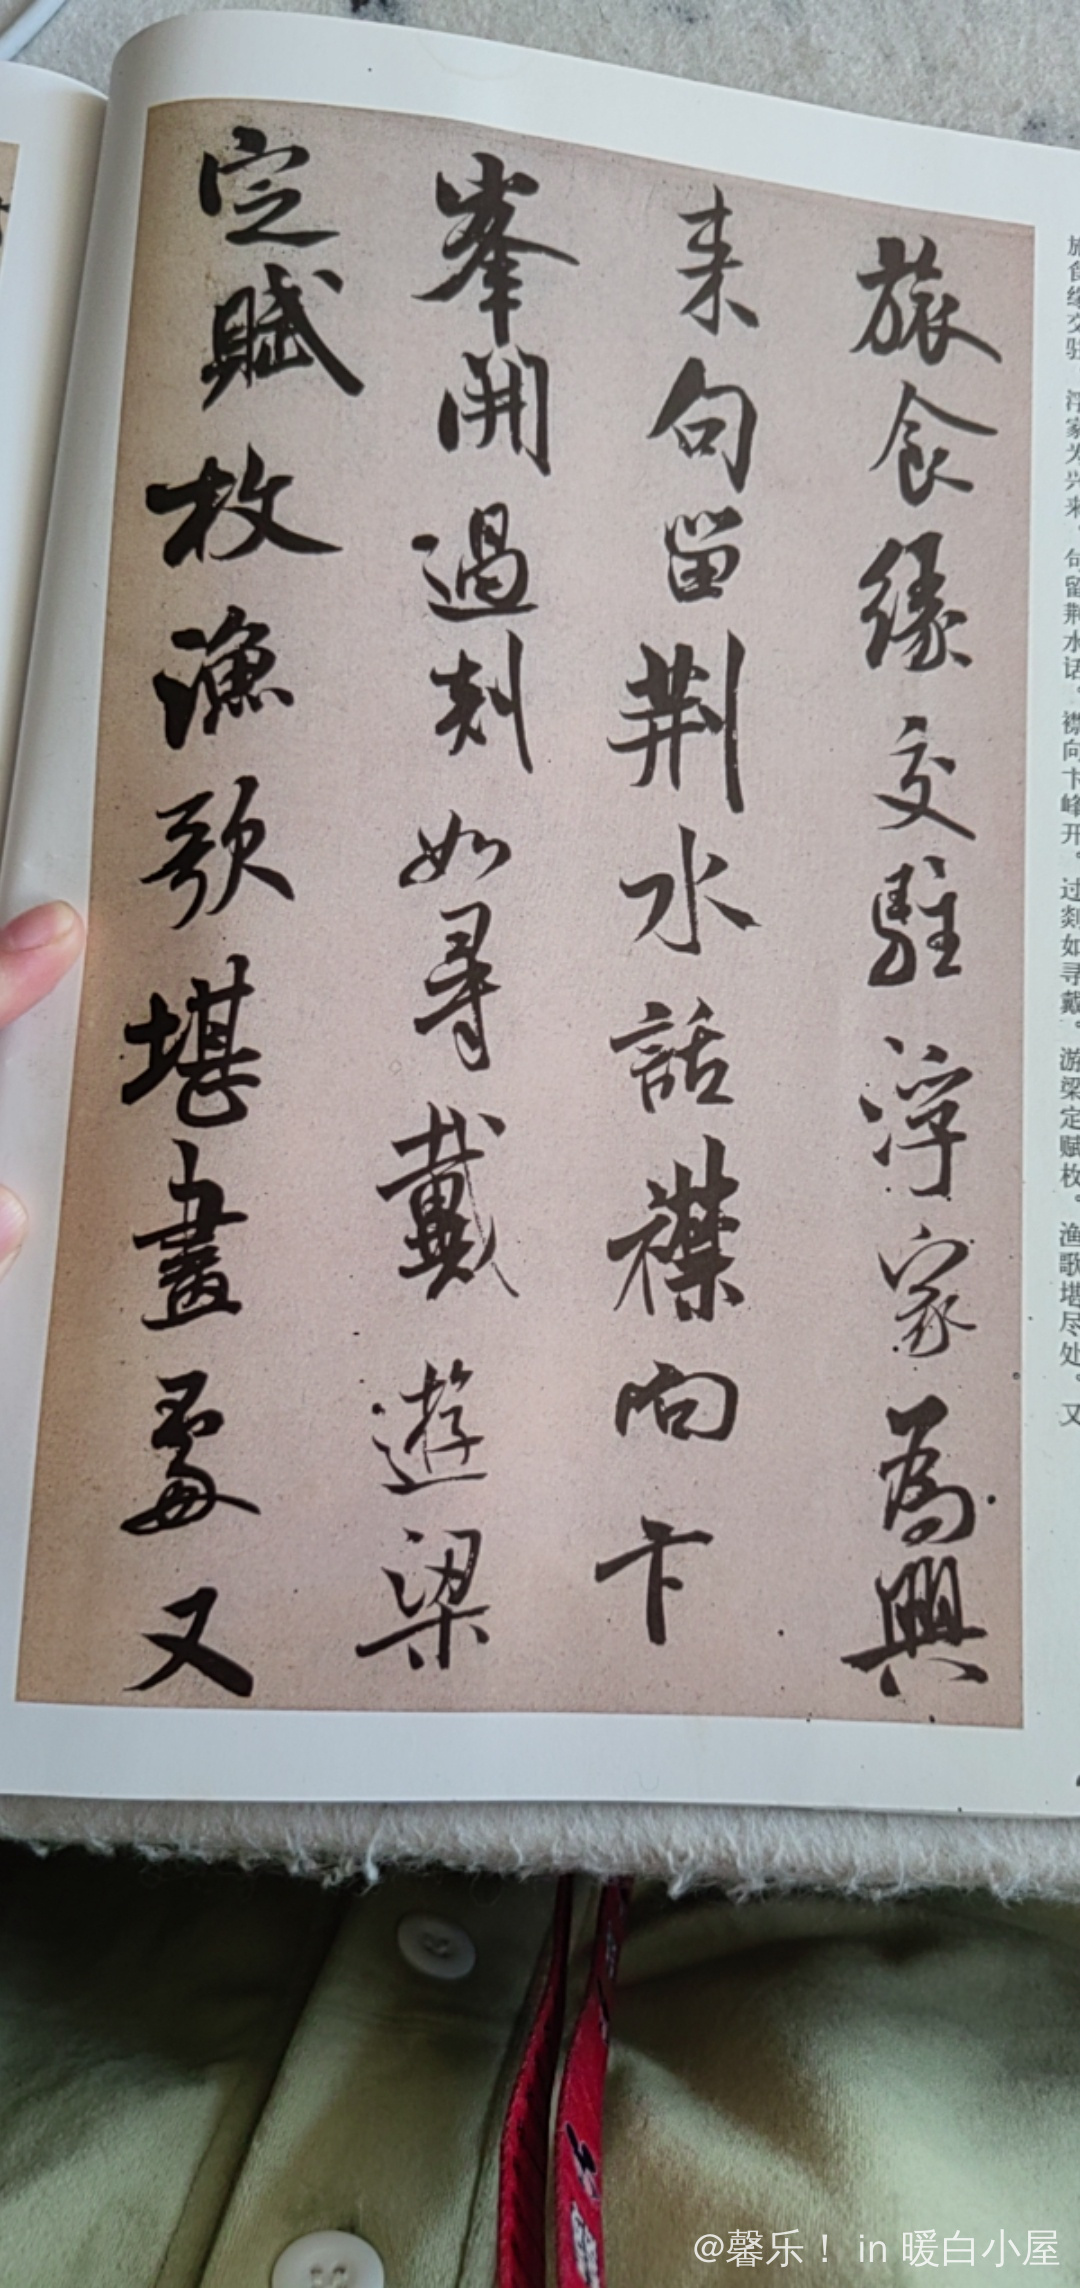 旅食緣交駐浮家為興
来句留荆水話襟向卞
峯開過剡如尋戴遊梁
定賦枚漁歌堪畫處又
旅食缘交驻 浮家为兴来 句留荆水话。襟向卞峰开。过剡如寻戴。游梁定赋枚。渔歌堪尽处。又
@馨乐！ in 暖白小屋